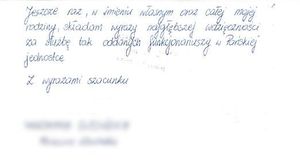 Jeszcze raz, w imieniu własnym oraz całej mojej
rodziny, składam wyrazy najgłębszej wdzięczności
za służbę tak oddanych funkcjonariuszy w Pańskiej
jednostce
Z wyrazami szacunku